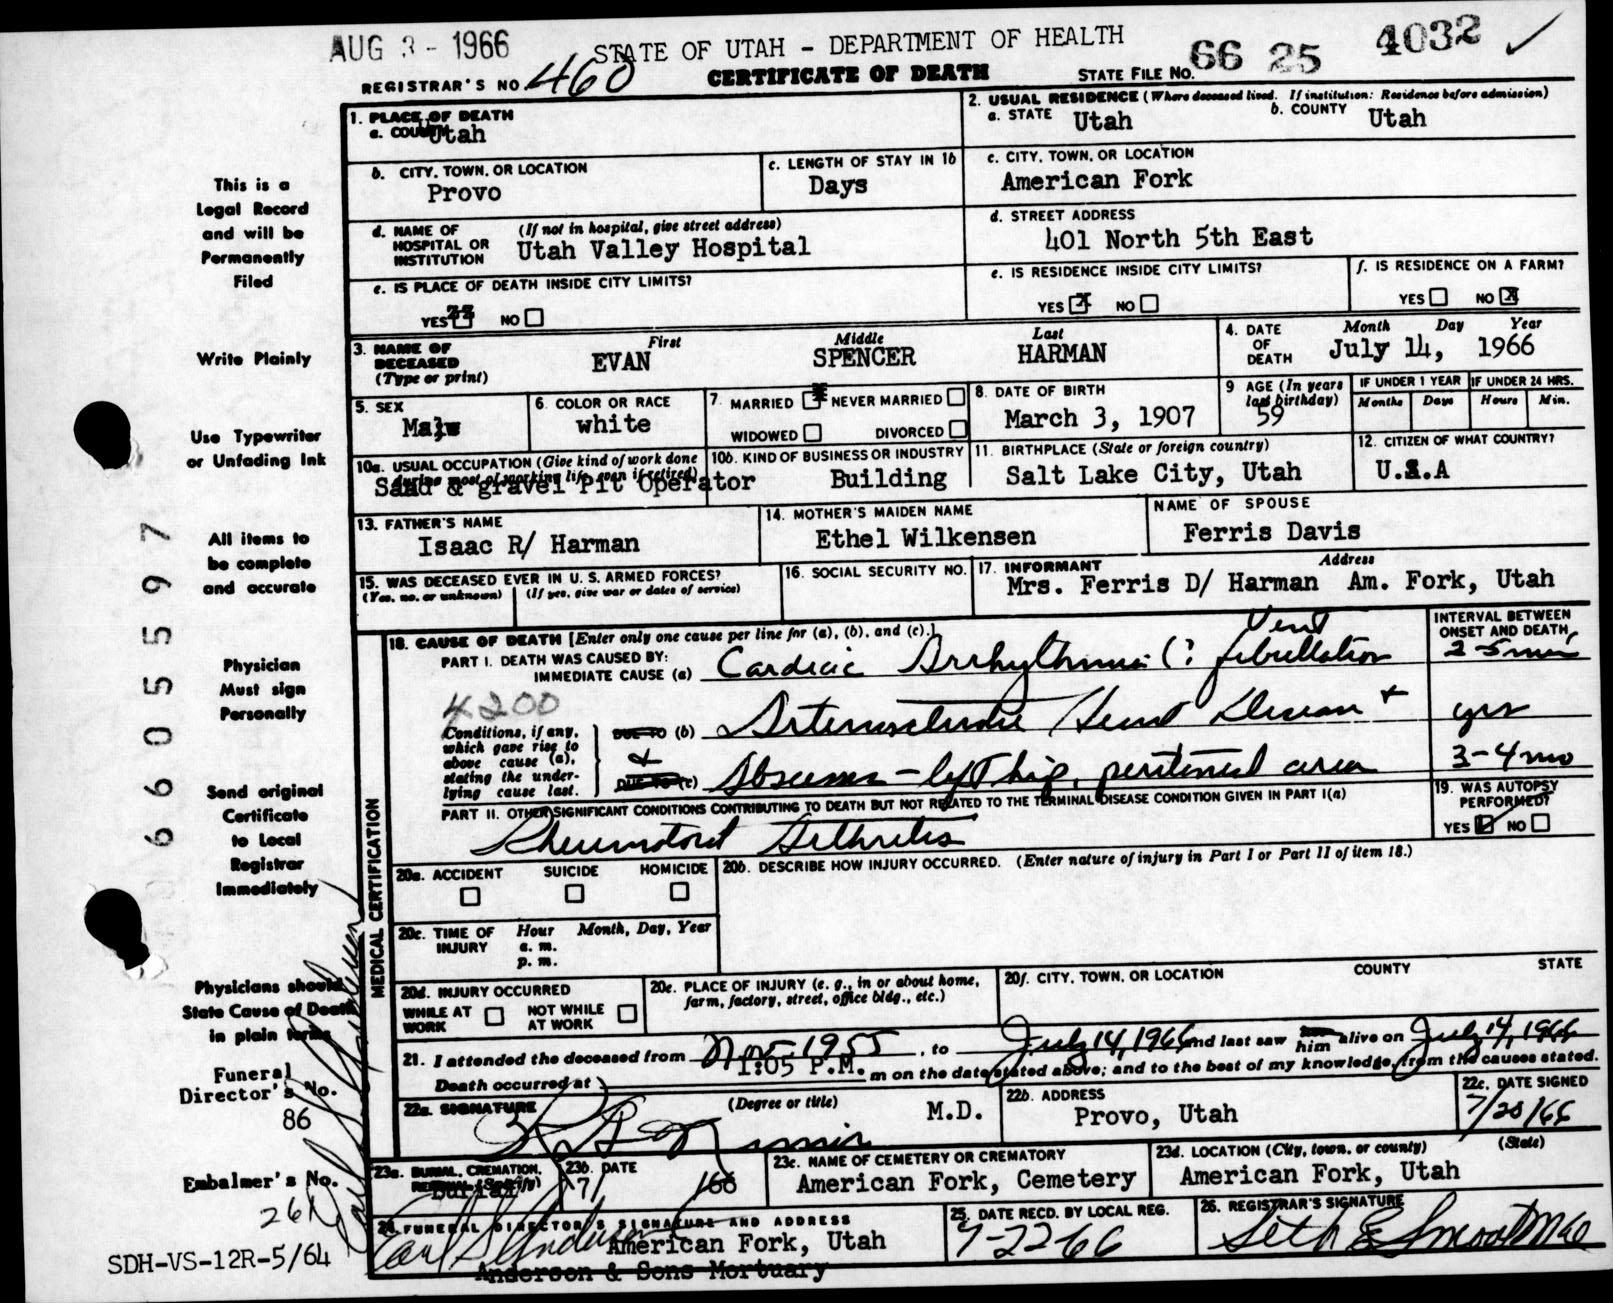 AUG 3 - 1966
STATE OF UTAH - DEPARTMENT OF HEALTH
66 25 4032 ✓
REGISTRAR'S NO. 460
CERTIFICATE OF DEATH
STATE FILE NO.
1. PLACE OF DEATH
a. COUNTY Utah
2. USUAL RESIDENCE (Where deceased lived. If institution: Residence before admission)
a. STATE Utah
b. COUNTY Utah
b. CITY, TOWN, OR LOCATION
Provo
c. LENGTH OF STAY IN 1b
Days
c. CITY, TOWN, OR LOCATION
American Fork
d. NAME OF HOSPITAL OR INSTITUTION (If not in hospital, give street address)
Utah Valley Hospital
d. STREET ADDRESS
401 North 5th East
e. IS PLACE OF DEATH INSIDE CITY LIMITS?
YES NO
e. IS RESIDENCE INSIDE CITY LIMITS?
YES X NO
f. IS RESIDENCE ON A FARM?
YES NO X
3. NAME OF DECEASED (Type or print)
First Middle Last
EVAN SPENCER HARMAN
4. DATE OF DEATH
Month Day Year
July 14, 1966
5. SEX
Male
6. COLOR OR RACE
white
7. MARRIED NEVER MARRIED
WIDOWED DIVORCED
8. DATE OF BIRTH
March 3, 1907
9 AGE (In years last birthday)
59
IF UNDER 1 YEAR
Months Days
IF UNDER 24 HRS.
Hours Min.
10a. USUAL OCCUPATION (Give kind of work done during most of working life, even if retired)
Sand & gravel Pit Operator
10b. KIND OF BUSINESS OR INDUSTRY
Building
11. BIRTHPLACE (State or foreign country)
Salt Lake City, Utah
12. CITIZEN OF WHAT COUNTRY?
U.S.A
13. FATHER'S NAME
Isaac R/ Harman
14. MOTHER'S MAIDEN NAME
Ethel Wilkensen
NAME OF SPOUSE
Ferris Davis
15. WAS DECEASED EVER IN U. S. ARMED FORCES?
(Yes, no, or unknown) (If yes, give war or dates of service)
16. SOCIAL SECURITY NO.
17. INFORMANT Address
Mrs. Ferris D/ Harman Am. Fork, Utah
MEDICAL CERTIFICATION
18. CAUSE OF DEATH [Enter only one cause per line for (a), (b), and (c).]
INTERVAL BETWEEN ONSET AND DEATH
PART I. DEATH WAS CAUSED BY:
IMMEDIATE CAUSE (a) Cardiac Arrhythmia (? Vent fibrillation
2-5 min
4200
Conditions, if any, which gave rise to above cause (a), stating the underlying cause last.
DUE TO (b) Arteriosclerotic Heart Disease +
yrs
&
DUE TO (c) Abscesses - left hip, peritoneal area
3-4 mo
PART II. OTHER SIGNIFICANT CONDITIONS CONTRIBUTING TO DEATH BUT NOT RELATED TO THE TERMINAL DISEASE CONDITION GIVEN IN PART I(a)
Rheumatoid Arthritis
19. WAS AUTOPSY PERFORMED?
YES NO
20a. ACCIDENT SUICIDE HOMICIDE
20b. DESCRIBE HOW INJURY OCCURRED. (Enter nature of injury in Part I or Part II of item 18.)
20c. TIME OF INJURY
Hour Month, Day, Year
a. m.
p. m.
20d. INJURY OCCURRED
WHILE AT WORK NOT WHILE AT WORK
20e. PLACE OF INJURY (e. g., in or about home, farm, factory, street, office bldg., etc.)
20f. CITY, TOWN, OR LOCATION COUNTY STATE
21. I attended the deceased from Nov 1955, to July 14, 1966 and last saw him alive on July 14, 1966
Death occurred at 1:05 P.M. m on the date stated above; and to the best of my knowledge, from the causes stated.
22a. SIGNATURE (Degree or title) M.D.
22b. ADDRESS
Provo, Utah
22c. DATE SIGNED
7/20/66
23a. BURIAL, CREMATION, REMOVAL (Specify)
Burial
23b. DATE
7/ /66
23c. NAME OF CEMETERY OR CREMATORY
American Fork, Cemetery
23d. LOCATION (City, town, or county) (State)
American Fork, Utah
24. FUNERAL DIRECTOR'S SIGNATURE AND ADDRESS
Earl S Anderson
American Fork, Utah
Anderson & Sons Mortuary
25. DATE RECD. BY LOCAL REG.
7-22-66
26. REGISTRAR'S SIGNATURE
Seth E Smoot
This is a
Legal Record
and will be
Permanently
Filed
Write Plainly
Use Typewriter
or Unfading Ink
All items to
be complete
and accurate
Physician
Must sign
Personally
Send original
Certificate
to Local
Registrar
Immediately
Physicians should
State Cause of Death
in plain terms
Funeral
Director's No.
86
Embalmer's No.
SDH-VS-12R-5/64
66055597